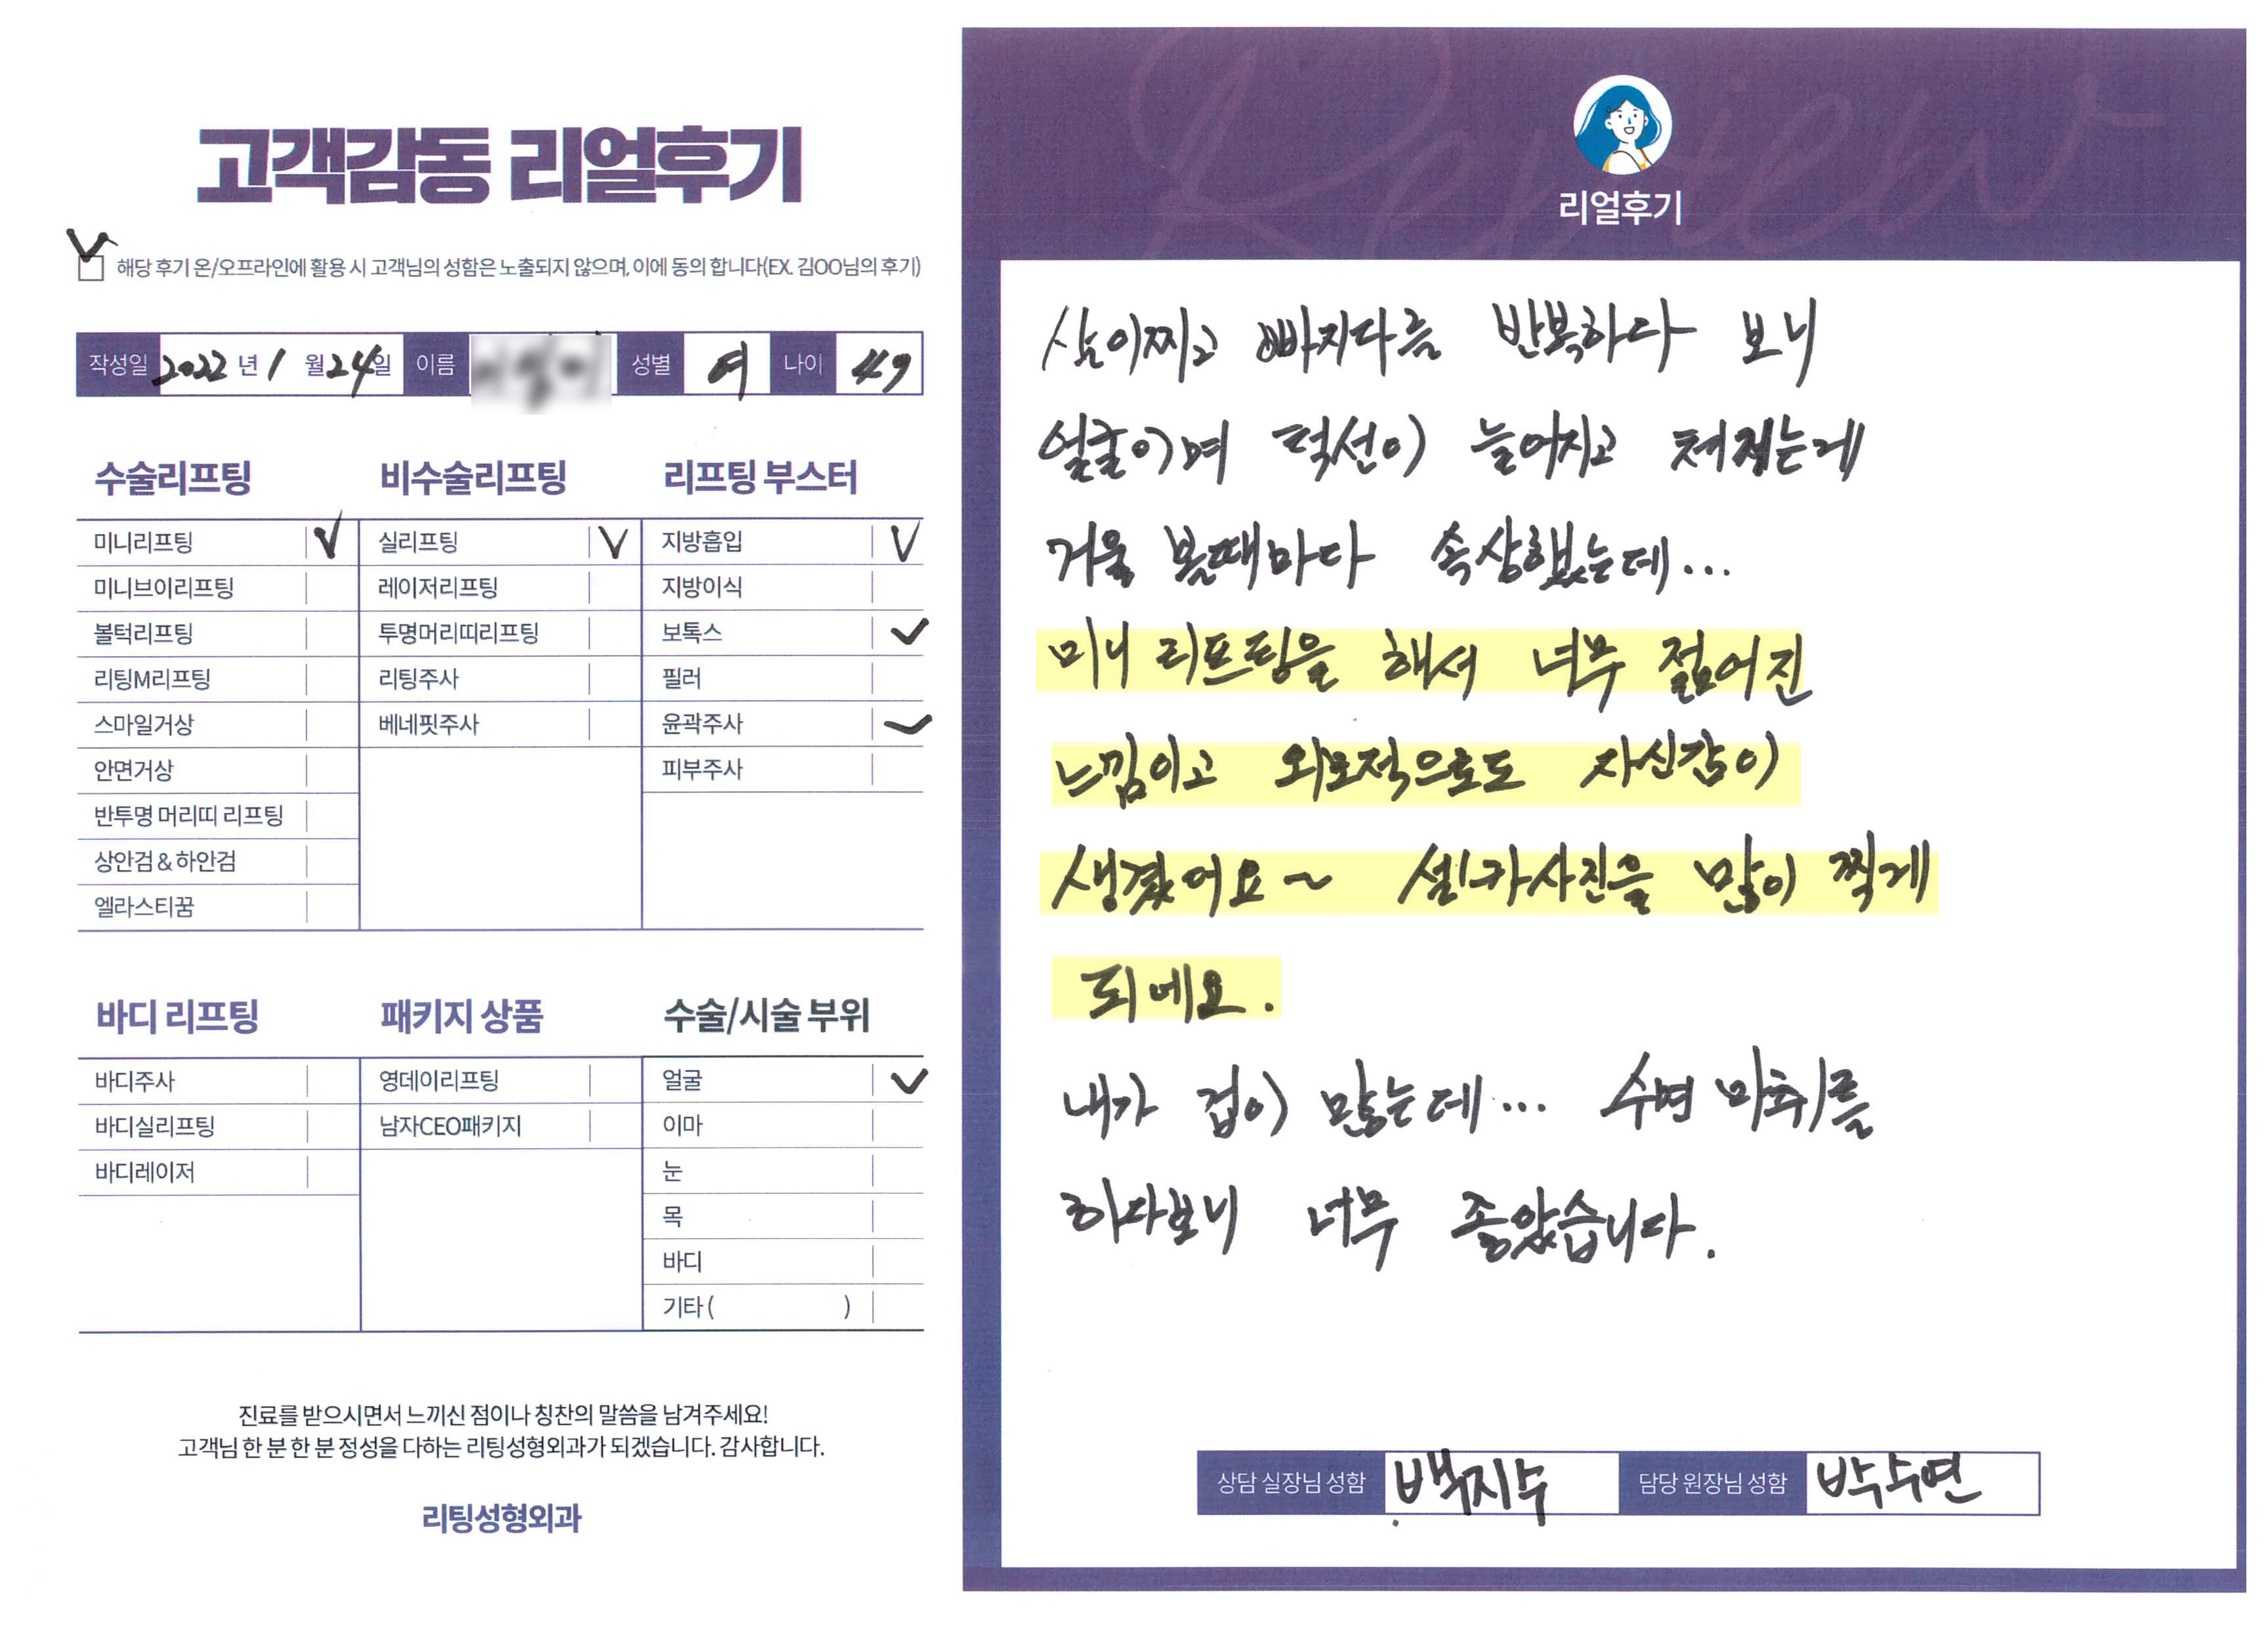 고객감동 리얼후기
해당 후기 온/오프라인에 활용 시 고객님의 성함은 노출되지 않으며, 이에 동의 합니다(EX. 김OO님의 후기)
작성일 2022 년 1 월 24일 이름 성별 여 나이 49
수술리프팅
미니리프팅 V
미니브이리프팅
볼턱리프팅
리팅M리프팅
스마일거상
안면거상
반투명 머리띠 리프팅
상안검 & 하안검
엘라스티꿈
비수술리프팅
실리프팅 V
레이저리프팅
투명머리띠리프팅
리팅주사
베네핏주사
리프팅 부스터
지방흡입 V
지방이식
보톡스 ✓
필러
윤곽주사 ✓
피부주사
바디 리프팅
바디주사
바디실리프팅
바디레이저
패키지 상품
영데이리프팅
남자CEO패키지
수술/시술 부위
얼굴 ✓
이마
눈
목
바디
기타 ( )
진료를 받으시면서 느끼신 점이나 칭찬의 말씀을 남겨주세요!
고객님 한 분 한 분 정성을 다하는 리팅성형외과가 되겠습니다. 감사합니다.
리팅성형외과
Review
리얼후기
살이찌고 빠지다를 반복하다 보니
얼굴이며 턱선이 늘어지고 쳐지는게
거울 볼때마다 속상했는데...
미니 리프팅을 해서 너무 젊어진
느낌이고 외모적으로도 자신감이
생겼어요~ 셀카사진을 많이 찍게
되네요.
내가 겁이 많는데... 수면 마취를
하다보니 너무 좋았습니다.
상담 실장님 성함 백지수 담당 원장님 성함 박수연